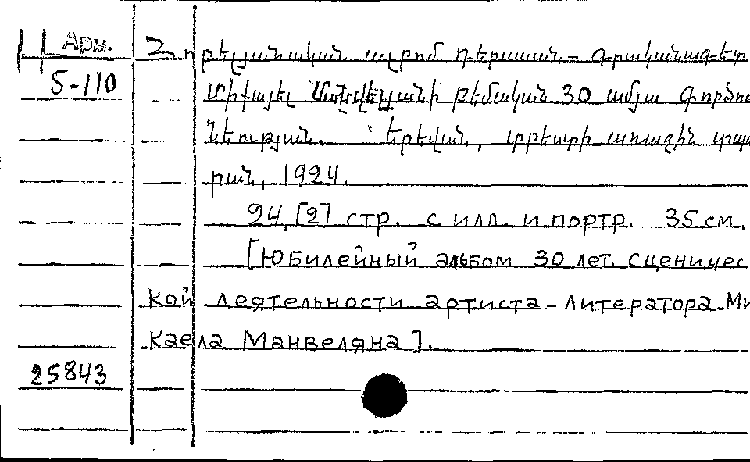 Арм.
5-110
Հոբելյանական ալբոմ դերասան-գրականագետ
Միքայել Մանվելյանի բեմական 30 ամյա գործու
նեության. Երեվան, պետհրատի առաջին տպա
րան, 1924.
24, [2] стр. с илл. и портр. 35 см.
[Юбилейный альбом 30 лет. сценичес
кой деятельности артиста-литератора Ми
каела Манвеляна].
25843